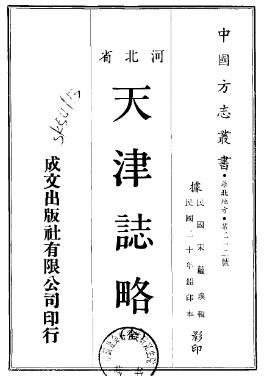 中國方志叢書·華北地方·第二一二號
據民國宋蘊璞輯
民國二十年鉛印本
影印
河北省
天津誌略
成文出版社有限公司印行